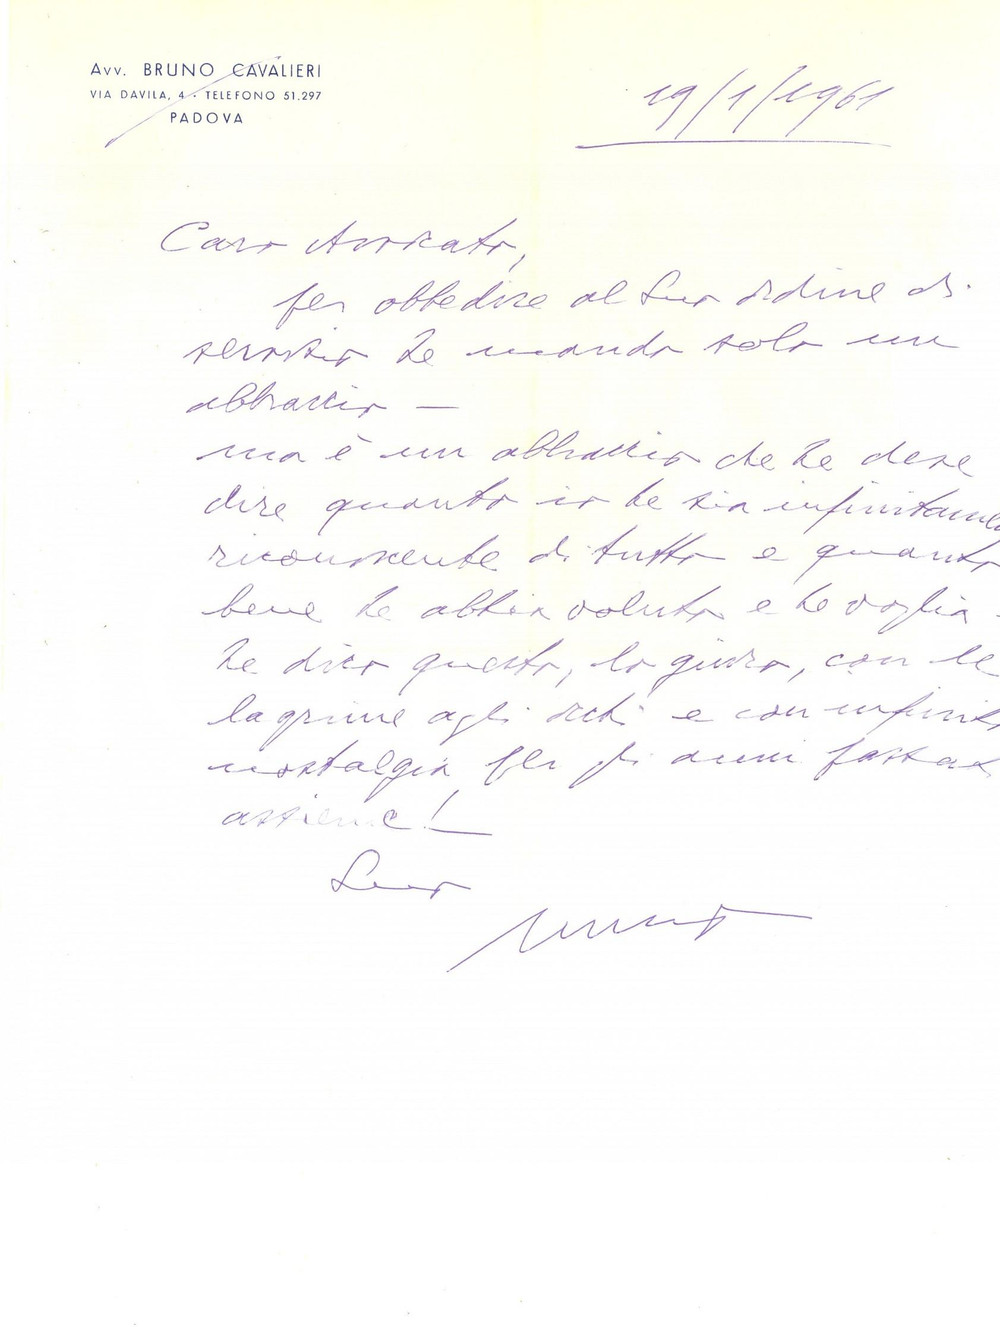 Avv. BRUNO CAVALIERI
VIA DAVILA, 4 - TELEFONO 51.297
PADOVA
19/1/1961
Caro Avvocato,
per obbedire al Suo ordine di
servizio Le mando solo un
abbraccio —
ma è un abbraccio che Le deve
dire quanto io Le sia infinitame
riconoscente di tutto e quanto
bene Le abbia voluto e Le voglia.
Le dico questo, lo giuro, con le
lagrime agli occhi e con infinit
nostalgia per gli anni passat
assieme!
Suo
Bruno